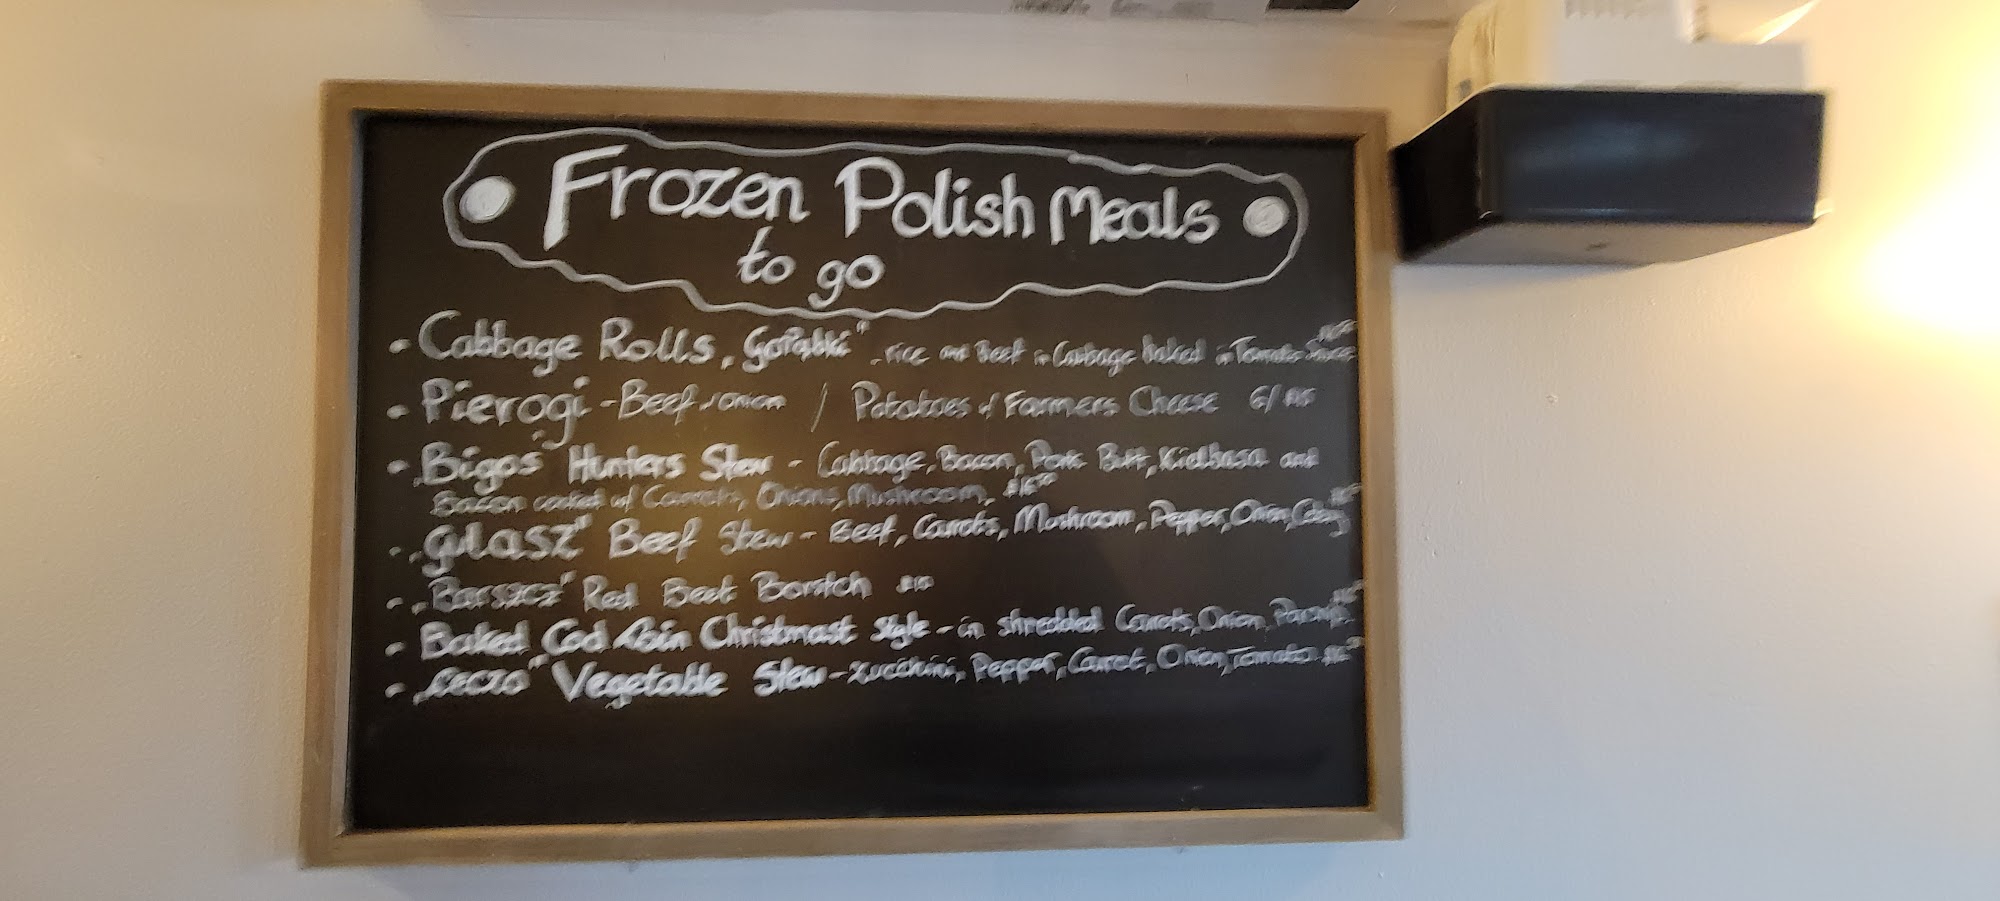 Frozen Polish Meals
to go
- Cabbage Rolls „Gołąbki" - rice and Beef in Cabbage baked in Tomato Sauce
- Pierogi - Beef w/ onion / Potatoes w/ Farmers Cheese 6/
- „Bigos" Hunters Stew - Cabbage, Bacon, Pork Butt, Kielbasa and
Bacon cooked w/ Carrots, Onions, Mushroom,
- „GULASZ" Beef Stew - Beef, Carrots, Mushroom, Pepper, Onion, Celery
- „Barszcz" Red Beet Borstch $10
- Baked Cod Loin Christmast Style - in shredded Carrots, Onion, Parsnip
- „Leczo" Vegetable Stew - Zucchini, Pepper, Carrot, Onion, Tomato